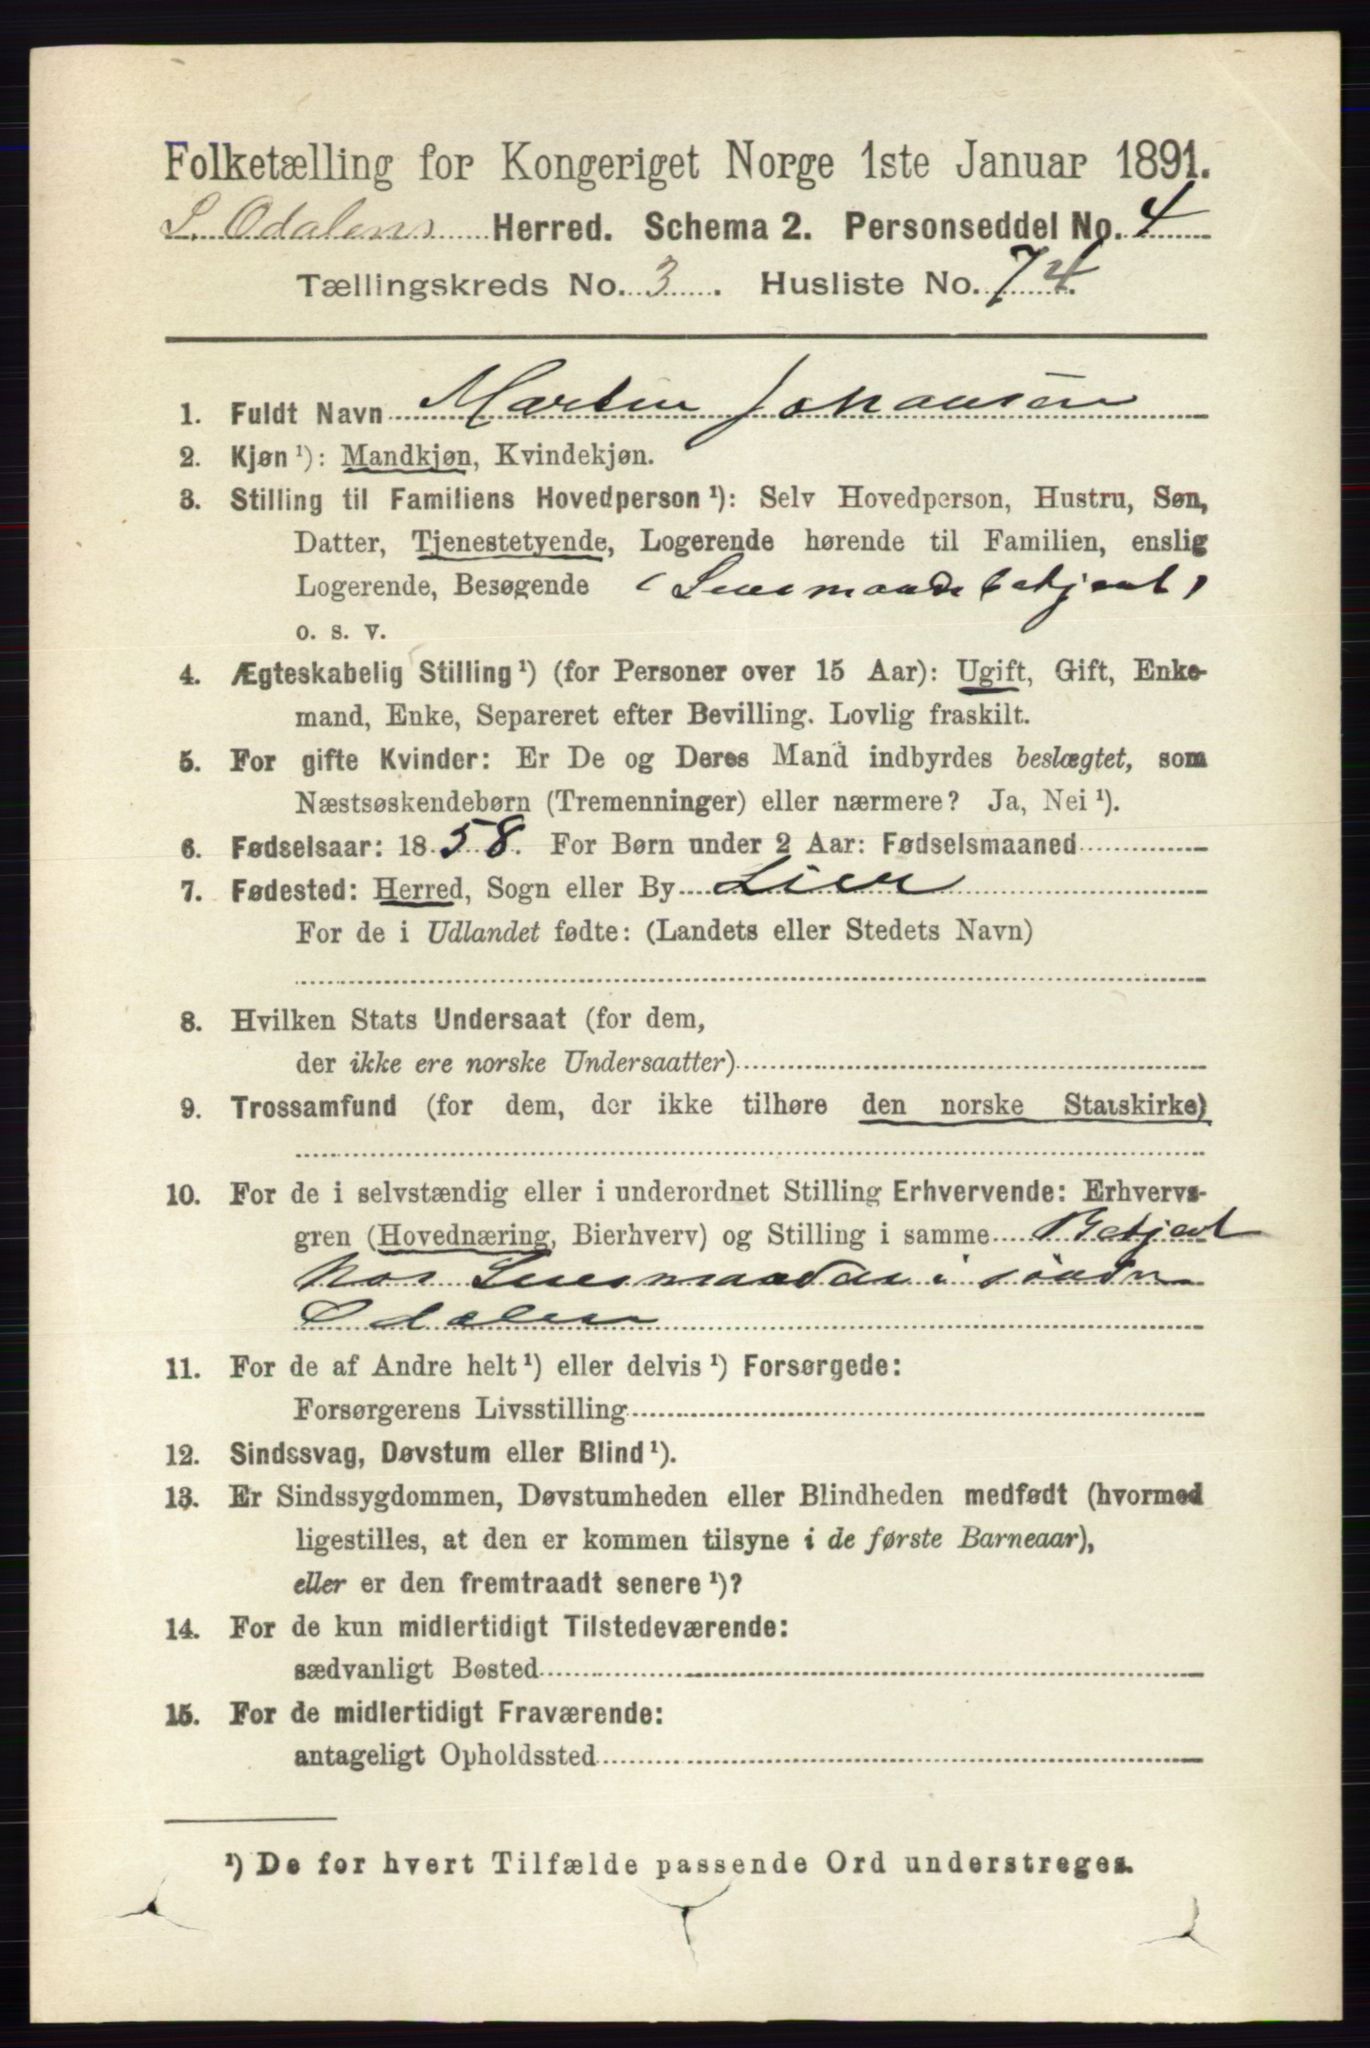 Folketælling for Kongeriget Norge 1ste Januar 1891.
S. Odalens Herred. Schema 2. Personseddel No. 4
Tællingskreds No. 3. Husliste No. 74.
1. Fuldt Navn Martin Johansen
2. Kjøn ¹): Mandkjøn, Kvindekjøn.
3. Stilling til Familiens Hovedperson ¹): Selv Hovedperson, Hustru, Søn,
Datter, Tjenestetyende, Logerende hørende til Familien, enslig
Logerende, Besøgende (Lensmandsbetjent)
o. s. v.
4. Ægteskabelig Stilling ¹) (for Personer over 15 Aar): Ugift, Gift, Enke-
mand, Enke, Separeret efter Bevilling. Lovlig fraskilt.
5. For gifte Kvinder: Er De og Deres Mand indbyrdes beslægtet, som
Næstsøskendebørn (Tremenninger) eller nærmere? Ja, Nei ¹).
6. Fødselsaar: 1858. For Børn under 2 Aar: Fødselsmaaned
7. Fødested: Herred, Sogn eller By Lier
For de i Udlandet fødte: (Landets eller Stedets Navn)
8. Hvilken Stats Undersaat (for dem,
der ikke ere norske Undersaatter)
9. Trossamfund (for dem, der ikke tilhøre den norske Statskirke)
10. For de i selvstændig eller i underordnet Stilling Erhvervende: Erhvervs-
gren (Hovednæring, Bierhverv) og Stilling i samme Betjent
hos Lensmanden i søndre
Odalen
11. For de af Andre helt ¹) eller delvis ¹) Forsørgede:
Forsørgerens Livsstilling
12. Sindssvag, Døvstum eller Blind ¹).
13. Er Sindssygdommen, Døvstumheden eller Blindheden medfødt (hvormed
ligestilles, at den er kommen tilsyne i de første Barneaar),
eller er den fremtraadt senere ¹)?
14. For de kun midlertidigt Tilstedeværende:
sædvanligt Bosted
15. For de midlertidigt Fraværende:
antageligt Opholdssted
¹) De for hvert Tilfælde passende Ord understreges.